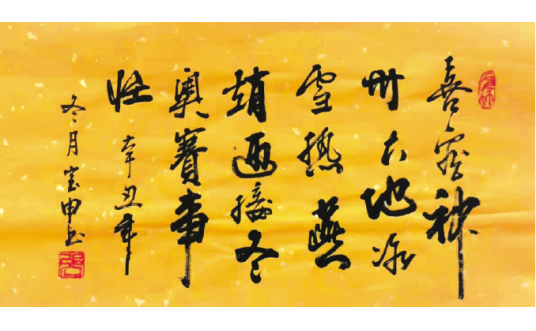 喜神
州大地冰
雪热燕
趙迎接冬
奥賽事
壮 辛丑年
冬月宝申书